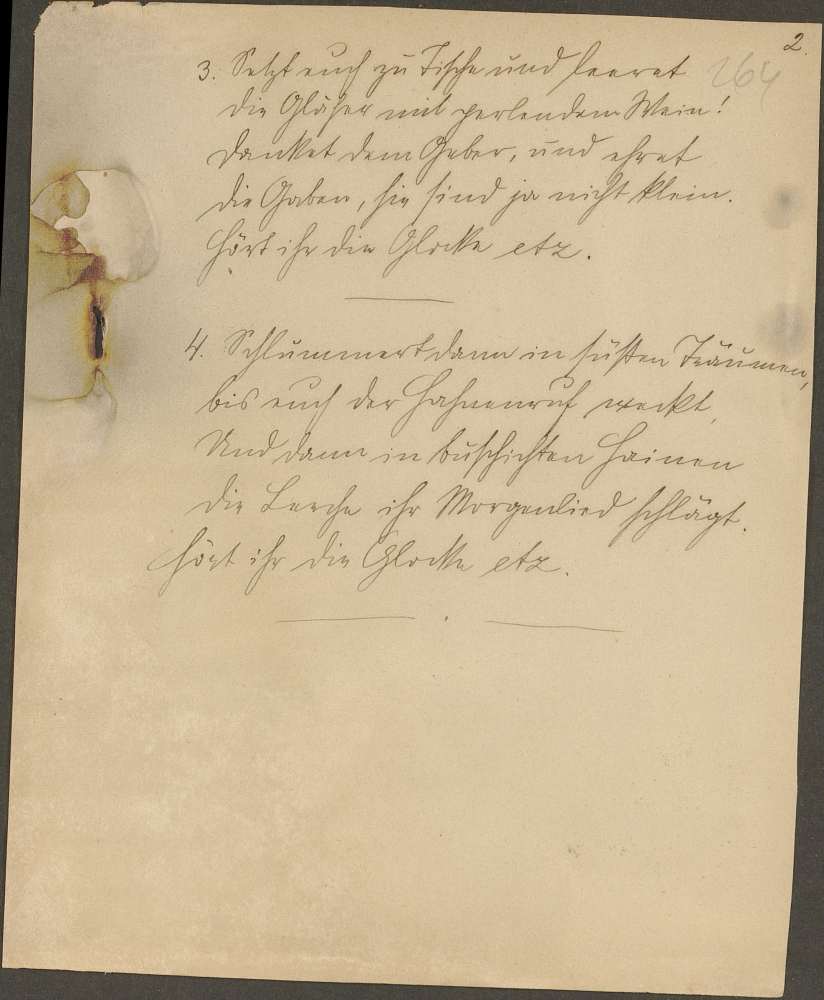 2.
264
3. Setzt euch zu Tische und leeret
die Gläser mit perlendem Wein!
Danket dem Geber, und ehret
die Gaben, sie sind ja nicht klein.
Hört ihr die Glocke etz.
4. Schlummert dann in süßen Träumen,
bis euch der Hahnenruf weckt,
Und dann in buschichten Hainen
die Lerche ihr Morgenlied schlägt.
Hört ihr die Glocke etz.